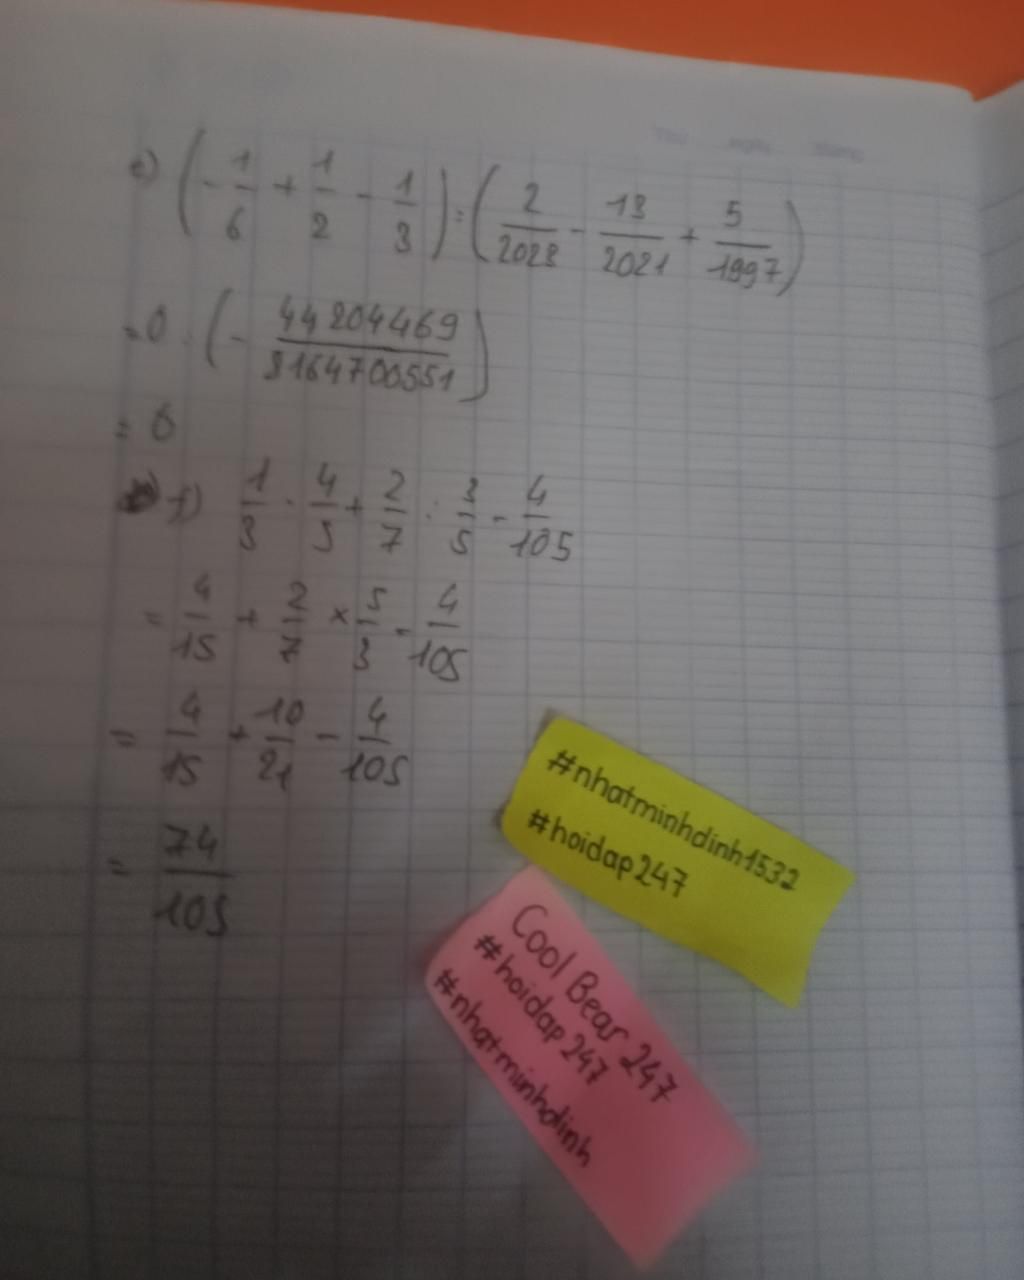 e) (-1/6 + 1/2 - 1/3) : (2/2023 - 13/2021 + 5/1997)
= 0 : (- 44204469/8164700551)
= 0
f) 1/3 . 4/5 + 2/7 : 3/5 - 4/105
= 4/15 + 2/7 × 5/3 - 4/105
= 4/15 + 10/21 - 4/105
= 74/105
#nhatminhdinh1532
#hoidap247
Cool Bear 247
#hoidap247
#nhatminhdinh